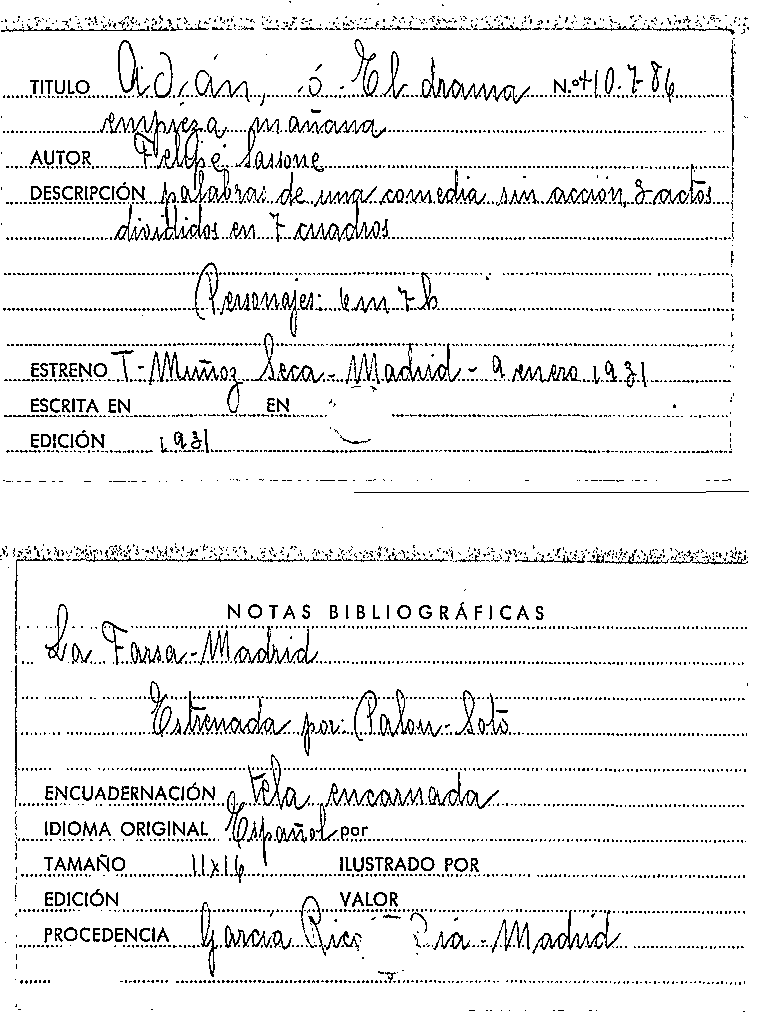 TITULO Adán, ó El drama N.º 410.7-86
empieza mañana
AUTOR Felipe Sassone
DESCRIPCIÓN palabras de una comedia sin acción, 3 actos
divididos en 7 cuadros
Personajes: 6 m 7 h
ESTRENO T- Muñoz Seca - Madrid - 9 enero 1931
ESCRITA EN EN
EDICIÓN 1931
NOTAS BIBLIOGRÁFICAS
La Farsa - Madrid
Estrenada por: Palou - Soto
ENCUADERNACIÓN tela encarnada
IDIOMA ORIGINAL Español por
TAMAÑO 11x16 ILUSTRADO POR
EDICIÓN VALOR
PROCEDENCIA García Rico Madrid